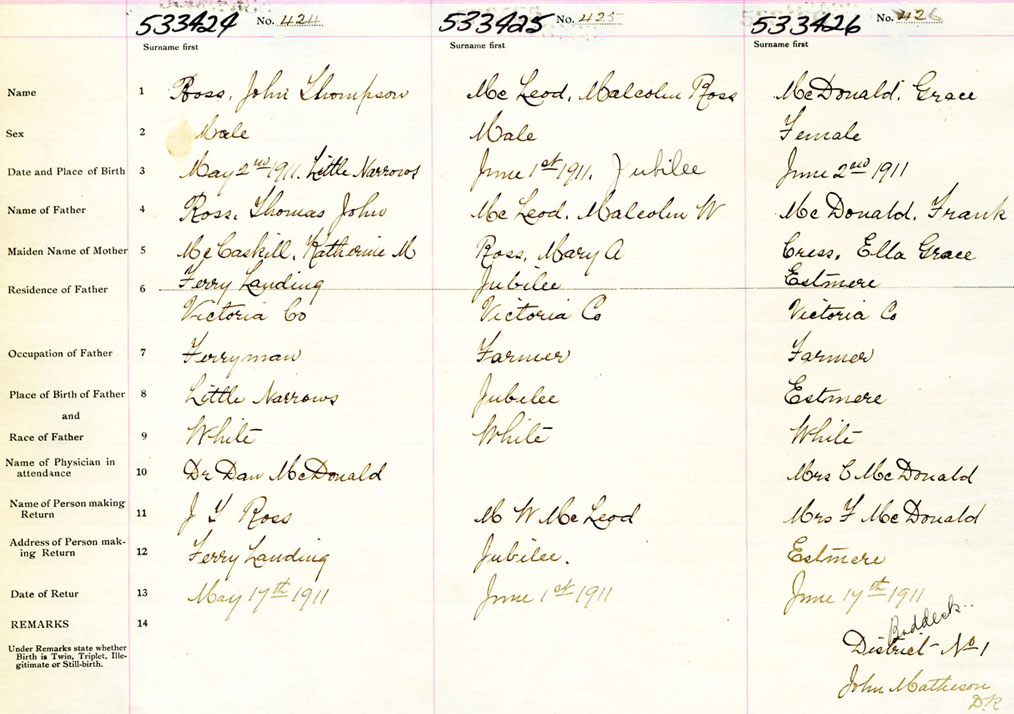 533424 No. 424 533425 No. 425 533426 No. 426
Surname first Surname first Surname first
Name 1 Ross, John Thompson McLeod, Malcolm Ross McDonald, Grace
Sex 2 Male Male Female
Date and Place of Birth 3 May 2nd 1911, Little Narrows June 1st 1911, Jubilee June 2nd 1911
Name of Father 4 Ross, Thomas John McLeod, Malcolm W McDonald, Frank
Maiden Name of Mother 5 McCaskill, Katherine M Ross, Mary A Cress, Ella Grace
Residence of Father 6 Ferry Landing Jubilee Estmere
Victoria Co Victoria Co Victoria Co
Occupation of Father 7 Ferryman Farmer Farmer
Place of Birth of Father 8 Little Narrows Jubilee Estmere
and
Race of Father 9 White White White
Name of Physician in
attendance 10 Dr Dan McDonald Mrs C McDonald
Name of Person making
Return 11 J Ross M W McLeod Mrs F McDonald
Address of Person mak-
ing Return 12 Ferry Landing Jubilee. Estmere
Date of Retur 13 May 17th 1911 June 1st 1911 June 17th 1911
REMARKS 14
Baddeck..
Under Remarks state whether
Birth is Twin, Triplet, Ille-
gitimate or Still-birth.
District No 1
John Matheson
D.R